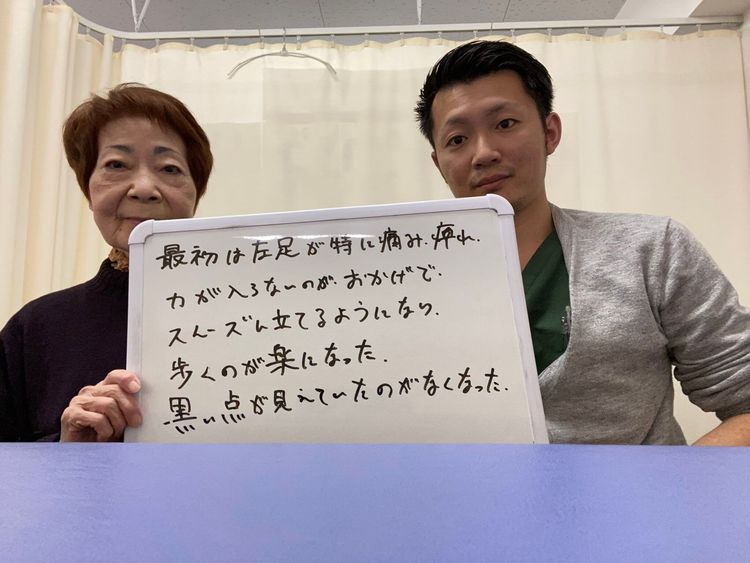 最初は左足が特に痛み、痺れ、
力が入らないのがおかげで、
スムーズに立てるようになり、
歩くのが楽になった。
黒い点が見えていたのがなくなった。